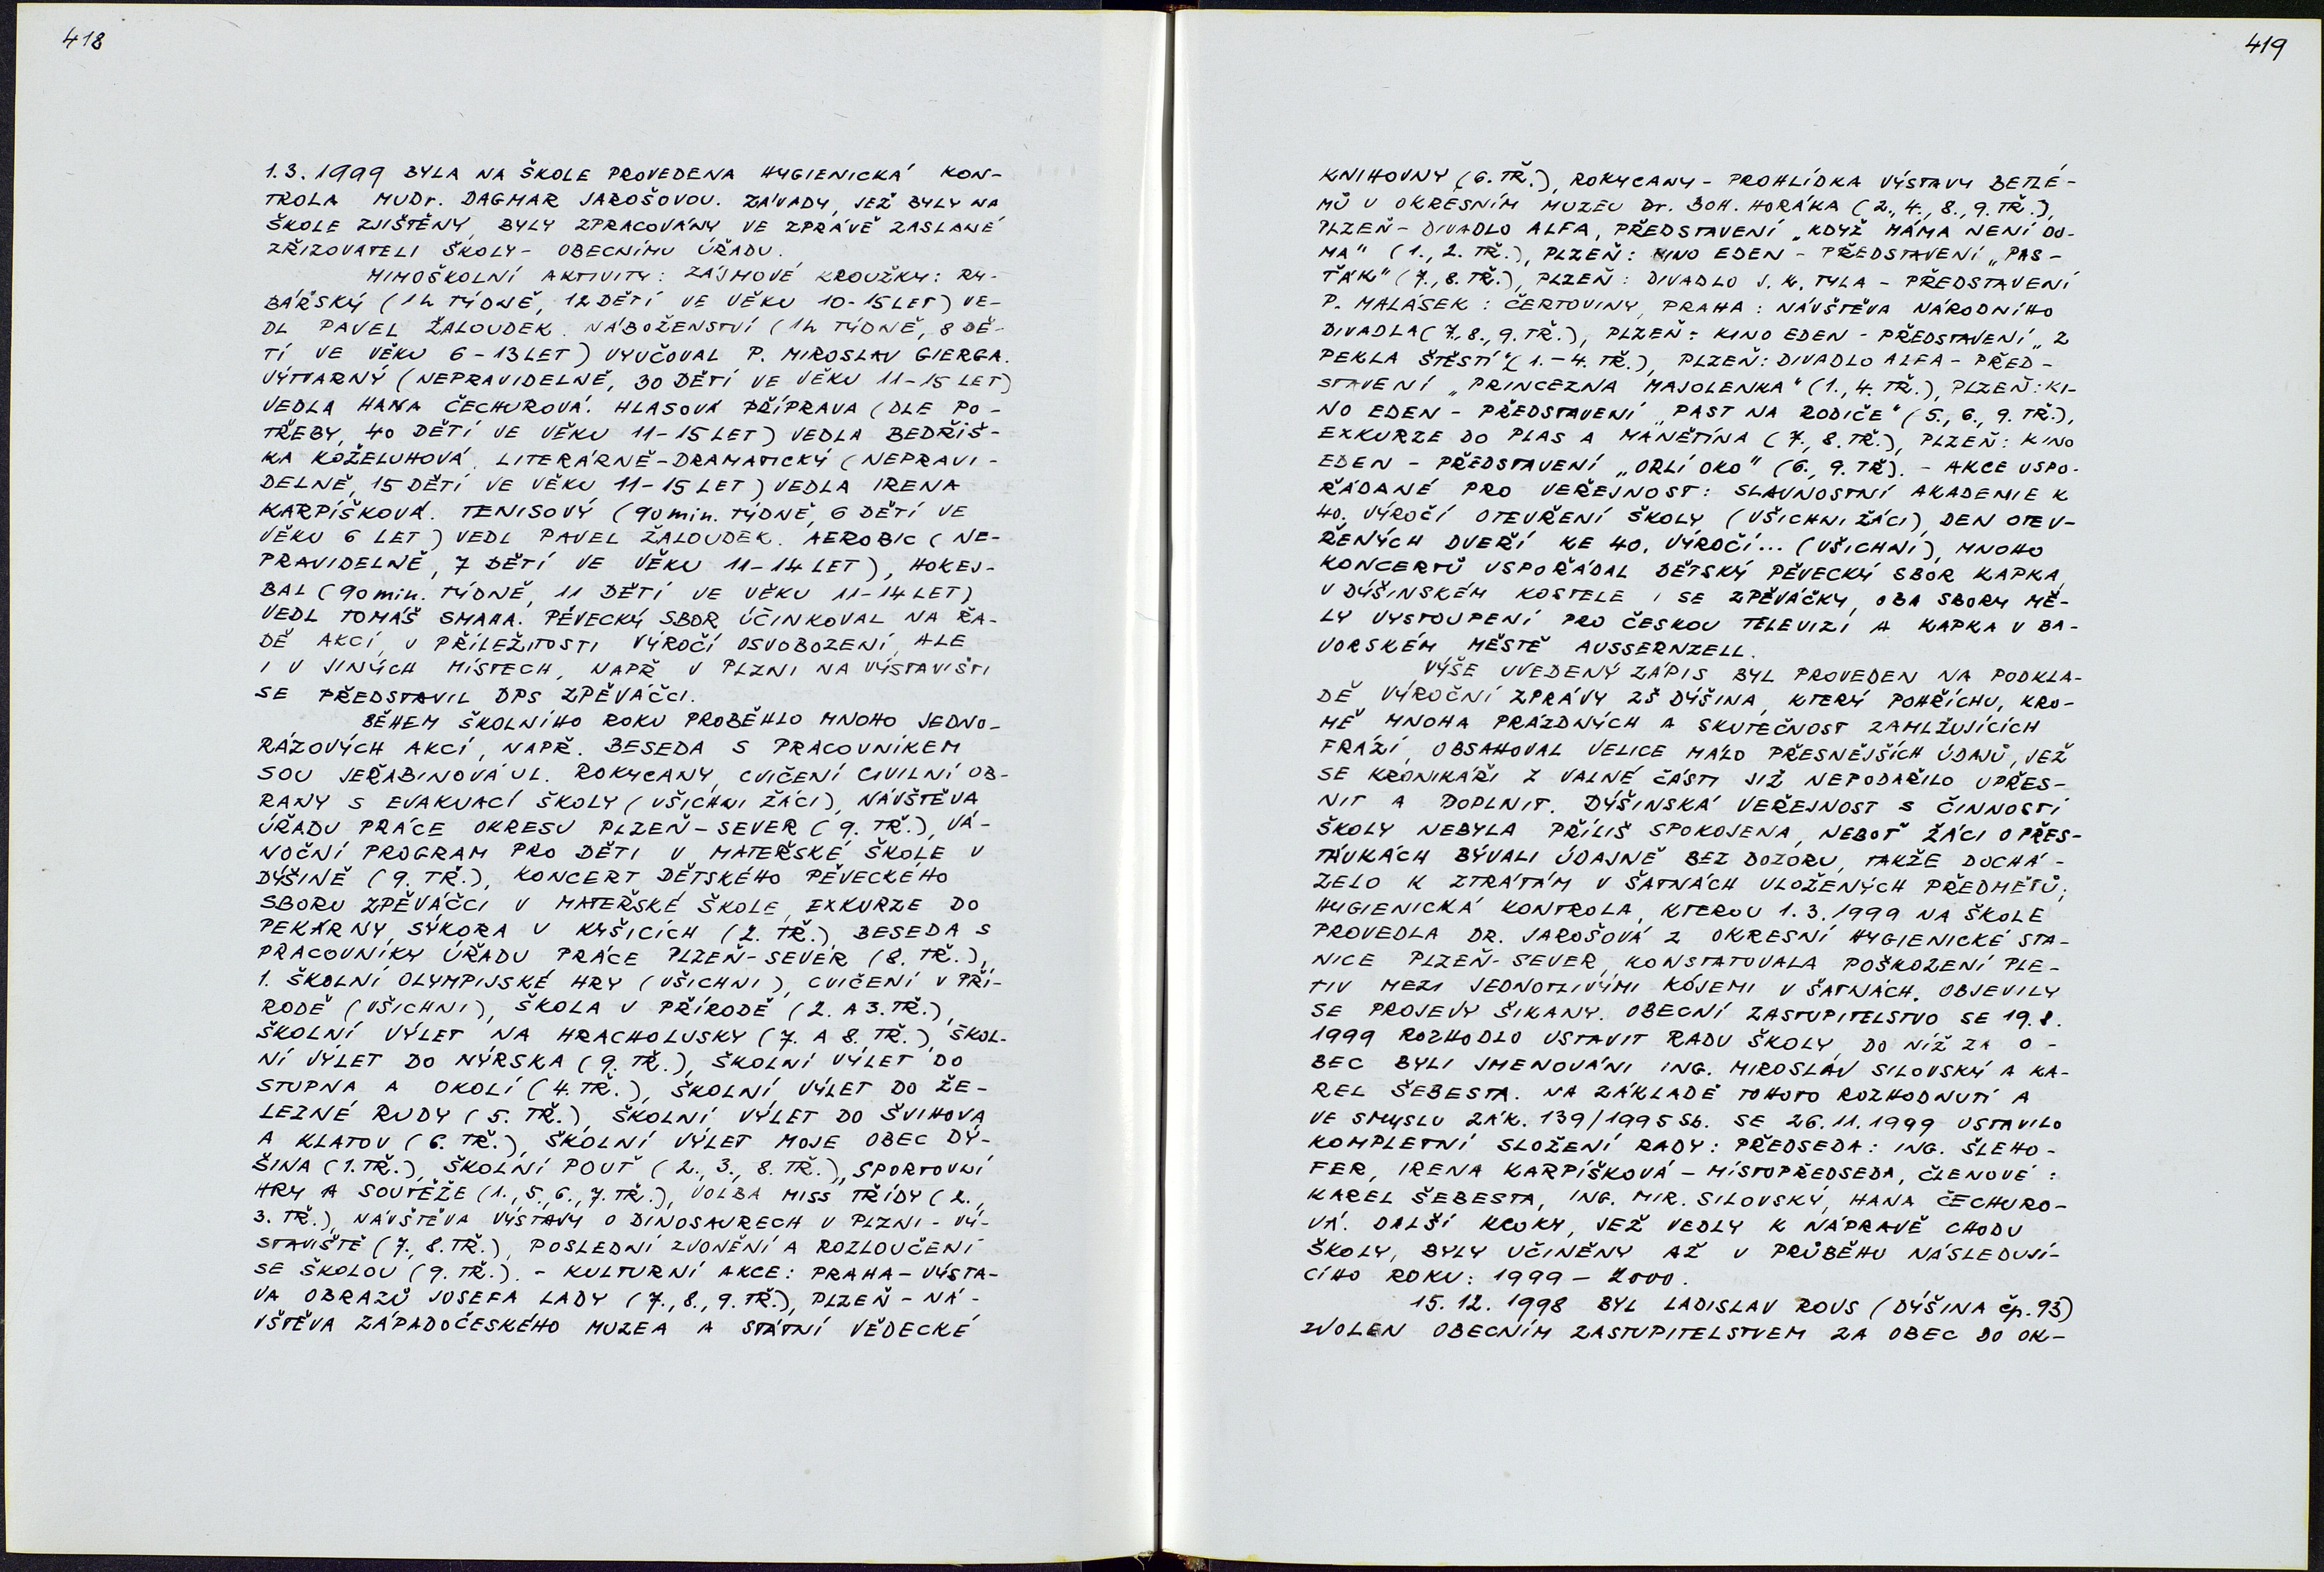 418
1.3.1999 BYLA NA ŠKOLE PROVEDENA HYGIENICKÁ KON-
TROLA MUDr. DAGMAR JAROŠOVOU. ZÁVADY, JEŽ BYLY NA
ŠKOLE ZJIŠTĚNY, BYLY ZPRACOVÁNY VE ZPRÁVĚ ZASLANÉ
ZŘIZOVATELI ŠKOLY - OBECNÍMU ÚŘADU.
MIMOŠKOLNÍ AKTIVITY: ZÁJMOVÉ KROUŽKY: RY-
BÁŘSKÝ (1h TÝDNĚ, 12 DĚTÍ VE VĚKU 10-15 LET) VE-
DL PAVEL ŽALOUDEK. NÁBOŽENSTVÍ (1h TÝDNĚ, 8 DĚ-
TÍ VE VĚKU 6-13 LET) VYUČOVAL P. MIROSLAV GIERGA.
VÝTVARNÝ (NEPRAVIDELNĚ, 30 DĚTÍ VE VĚKU 11-15 LET)
VEDLA HANA ČECHUROVÁ. HLASOVÁ PŘÍPRAVA (DLE PO-
TŘEBY, 40 DĚTÍ VE VĚKU 11-15 LET) VEDLA BEDŘIŠ-
KA KOŽELUHOVÁ. LITERÁRNĚ-DRAMATICKÝ (NEPRAVI-
DELNĚ, 15 DĚTÍ VE VĚKU 11-15 LET) VEDLA IRENA
KARPÍŠKOVÁ. TENISOVÝ (90 min. TÝDNĚ, 6 DĚTÍ VE
VĚKU 6 LET) VEDL PAVEL ŽALOUDEK. AEROBIC (NE-
PRAVIDELNĚ, 7 DĚTÍ VE VĚKU 11-14 LET), HOKEJ-
BAL (90 min. TÝDNĚ, 11 DĚTÍ VE VĚKU 11-14 LET)
VEDL TOMÁŠ SMAHA. PĚVECKÝ SBOR ÚČINKOVAL NA ŘA-
DĚ AKCÍ, U PŘÍLEŽITOSTI VÝROČÍ OSVOBOZENÍ, ALE
I V JINÝCH MÍSTECH, NAPŘ V PLZNI NA VÝSTAVIŠTI
SE PŘEDSTAVIL DPS ZPĚVÁČCI.
BĚHEM ŠKOLNÍHO ROKU PROBĚHLO MNOHO JEDNO-
RÁZOVÝCH AKCÍ, NAPŘ. BESEDA S PRACOVNÍKEM
SOU JEŘABINOVÁ UL. ROKYCANY, CVIČENÍ CIVILNÍ OB-
RANY S EVAKUACÍ ŠKOLY (VŠICHNI ŽÁCI), NÁVŠTĚVA
ÚŘADU PRÁCE OKRESU PLZEŇ-SEVER (9. TŘ.), VÁ-
NOČNÍ PROGRAM PRO DĚTI V MATEŘSKÉ ŠKOLE V
DÝŠINĚ (9. TŘ.), KONCERT DĚTSKÉHO PĚVECKÉHO
SBORU ZPĚVÁČCI V MATEŘSKÉ ŠKOLE, EXKURZE DO
PEKÁRNY SÝKORA V KYŠICÍCH (2. TŘ.), BESEDA S
PRACOVNÍKY ÚŘADU PRÁCE PLZEŇ-SEVER (8. TŘ.),
1. ŠKOLNÍ OLYMPIJSKÉ HRY (VŠICHNI), CVIČENÍ V PŘÍ-
RODĚ (VŠICHNI), ŠKOLA V PŘÍRODĚ (2. A 3. TŘ.),
ŠKOLNÍ VÝLET NA HRACHOLUSKY (7. A 8. TŘ.), ŠKOL-
NÍ VÝLET DO NÝRSKA (9. TŘ.), ŠKOLNÍ VÝLET DO
STUPNA A OKOLÍ (4. TŘ.), ŠKOLNÍ VÝLET DO ŽE-
LEZNÉ RUDY (5. TŘ.), ŠKOLNÍ VÝLET DO ŠVIHOVA
A KLATOV (6. TŘ.), ŠKOLNÍ VÝLET MOJE OBEC DÝ-
ŠINA (1. TŘ.), ŠKOLNÍ POUŤ (2., 3., 8. TŘ.), SPORTOVNÍ
HRY A SOUTĚŽE (1., 5., 6., 7. TŘ.), VOLBA MISS TŘÍDY (2.,
3. TŘ.), NÁVŠTĚVA VÝSTAVY O DINOSAURECH V PLZNI - VÝ-
STAVIŠTĚ (7., 8. TŘ.), POSLEDNÍ ZVONĚNÍ A ROZLOUČENÍ
SE ŠKOLOU (9. TŘ.). - KULTURNÍ AKCE: PRAHA - VÝSTA-
VA OBRAZŮ JOSEFA LADY (7., 8., 9. TŘ.), PLZEŇ - NÁ-
VŠTĚVA ZÁPADOČESKÉHO MUZEA A STÁTNÍ VĚDECKÉ
419
KNIHOVNY (6. TŘ.), ROKYCANY - PROHLÍDKA VÝSTAVY BETLÉ-
MŮ V OKRESNÍM MUZEU Dr. BOH. HORÁKA (2., 4., 8., 9. TŘ.),
PLZEŇ - DIVADLO ALFA, PŘEDSTAVENÍ „KDYŽ MÁMA NENÍ DO-
MA" (1., 2. TŘ.), PLZEŇ: KINO EDEN - PŘEDSTAVENÍ „PAS-
ŤÁK" (7., 8. TŘ.), PLZEŇ: DIVADLO J. K. TYLA - PŘEDSTAVENÍ
P. MALÁSEK: ČERTOVINY, PRAHA: NÁVŠTĚVA NÁRODNÍHO
DIVADLA (7., 8., 9. TŘ.), PLZEŇ: KINO EDEN - PŘEDSTAVENÍ „Z
PEKLA ŠTĚSTÍ" (1. - 4. TŘ.), PLZEŇ: DIVADLO ALFA - PŘED-
STAVENÍ „PRINCEZNA MAJOLENKA" (1., 4. TŘ.), PLZEŇ: KI-
NO EDEN - PŘEDSTAVENÍ „PAST NA RODIČE" (5., 6., 9. TŘ.),
EXKURZE DO PLAS A MANĚTÍNA (7., 8. TŘ.), PLZEŇ: KINO
EDEN - PŘEDSTAVENÍ „ORLÍ OKO" (6., 9. TŘ). - AKCE USPO-
ŘÁDANÉ PRO VEŘEJNOST: SLAVNOSTNÍ AKADEMIE K
40. VÝROČÍ OTEVŘENÍ ŠKOLY (VŠICHNI ŽÁCI), DEN OTEV-
ŘENÝCH DVEŘÍ KE 40. VÝROČÍ... (VŠICHNI), MNOHO
KONCERTŮ USPOŘÁDAL DĚTSKÝ PĚVECKÝ SBOR KAPKA,
V DÝŠINSKÉM KOSTELE I SE ZPĚVÁČKY, OBA SBORY MĚ-
LY VYSTOUPENÍ PRO ČESKOU TELEVIZI A KAPKA V BA-
VORSKÉM MĚSTĚ AUSSERNZELL.
VÝŠE UVEDENÝ ZÁPIS BYL PROVEDEN NA PODKLA-
DĚ VÝROČNÍ ZPRÁVY ZŠ DÝŠINA, KTERÝ POHŘÍCHU, KRO-
MĚ MNOHA PRÁZDNÝCH A SKUTEČNOST ZAMLŽUJÍCÍCH
FRÁZÍ, OBSAHOVAL VELICE MÁLO PŘESNĚJŠÍCH ÚDAJŮ, JEŽ
SE KRONIKÁŘI Z VALNÉ ČÁSTI JIŽ NEPODAŘILO UPŘES-
NIT A DOPLNIT. DÝŠINSKÁ VEŘEJNOST S ČINNOSTÍ
ŠKOLY NEBYLA PŘÍLIŠ SPOKOJENA, NEBOŤ ŽÁCI O PŘES-
TÁVKÁCH BÝVALI ÚDAJNĚ BEZ DOZORU, TAKŽE DOCHÁ-
ZELO K ZTRÁTÁM V ŠATNÁCH ULOŽENÝCH PŘEDMĚTŮ;
HYGIENICKÁ KONTROLA, KTEROU 1.3.1999 NA ŠKOLE
PROVEDLA DR. JAROŠOVÁ Z OKRESNÍ HYGIENICKÉ STA-
NICE PLZEŇ-SEVER, KONSTATOVALA POŠKOZENÍ PLE-
TIV MEZI JEDNOTLIVÝMI KÓJEMI V ŠATNÁCH. OBJEVILY
SE PROJEVY ŠIKANY. OBECNÍ ZASTUPITELSTVO SE 19.8.
1999 ROZHODLO USTAVIT RADU ŠKOLY, DO NÍŽ ZA O-
BEC BYLI JMENOVÁNI ING. MIROSLAV SILOVSKÝ A KA-
REL ŠEBESTA. NA ZÁKLADĚ TOHOTO ROZHODNUTÍ A
VE SMYSLU ZÁK. 139/1995 Sb. SE 26.11.1999 USTAVILO
KOMPLETNÍ SLOŽENÍ RADY: PŘEDSEDA: ING. ŠLEHO-
FER, IRENA KARPÍŠKOVÁ - MÍSTOPŘEDSEDA, ČLENOVÉ:
KAREL ŠEBESTA, ING. MIR. SILOVSKÝ, HANA ČECHURO-
VÁ. DALŠÍ KROKY, JEŽ VEDLY K NÁPRAVĚ CHODU
ŠKOLY, BYLY UČINĚNY AŽ V PRŮBĚHU NÁSLEDUJÍ-
CÍHO ROKU: 1999 - 2000.
15. 12. 1998 BYL LADISLAV ROUS (DÝŠINA čp. 93)
ZVOLEN OBECNÍM ZASTUPITELSTVEM ZA OBEC DO OK-